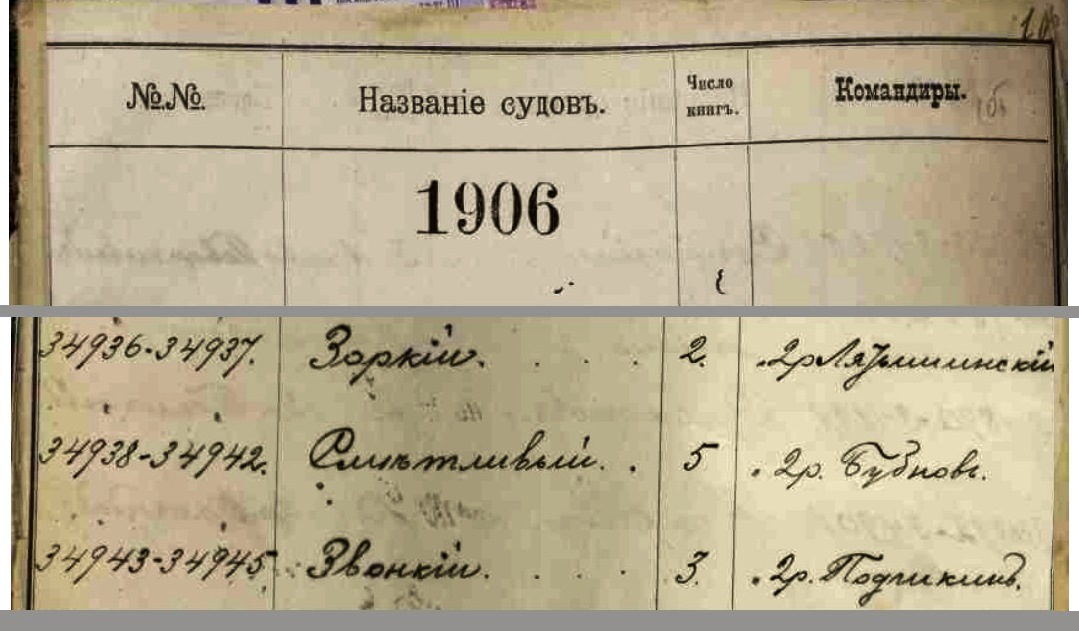 №№. Названіе судовъ. Число книгъ. Командиры.
1906
34936-34937. Зоркій. . . . 2. 2р
34938-34942. Смѣтливый. . 5 2р. Бубновъ.
34943-34945 Звонкій. . . . 3. 2р. Подпикинъ.